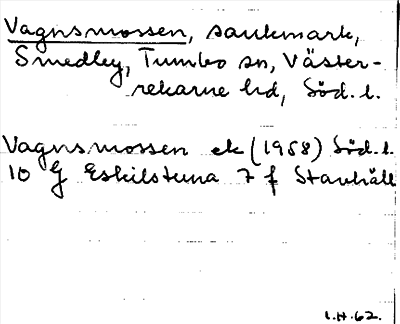 Vagnsmossen, sankmark,
Smedby, Tumbo sn, Väster-
rekarne hd, Söd. l.
Vagnsmossen ek (1958) Söd. l.
10 G Eskilstuna 7 f Stanhäll
I.H.62.